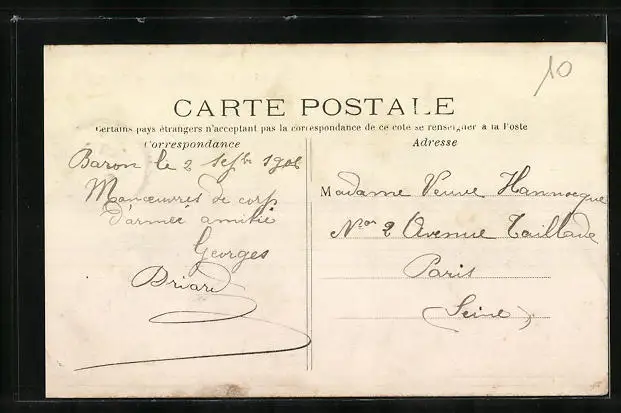 10
CARTE POSTALE
Certains pays étrangers n'acceptant pas la correspondance de ce coté se renseigner a la Poste
Correspondance
Adresse
Baron le 2 Sepbre 1906
Manœuvres de corp
d'armée amitié
Georges
Briard
Madame Veuve Hannocque
Nro 2 Avenue Taillade
Paris
(Seine)